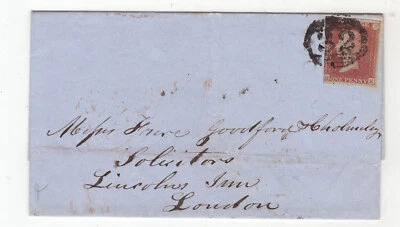 32
ONE PENNY
Messrs Frere Goodford & Cholmeley
Solicitors
Lincolns Inn
London